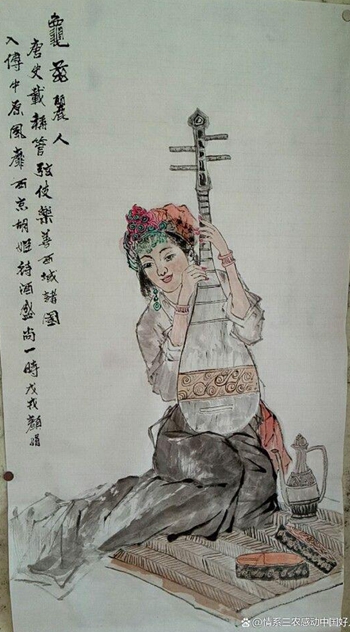 龜茲麗人
唐史載稱管弦伎樂善西域諸國
入傳中原風靡西京胡姬待酒盛尚一時戊戌顏
@情系三农感动中国好